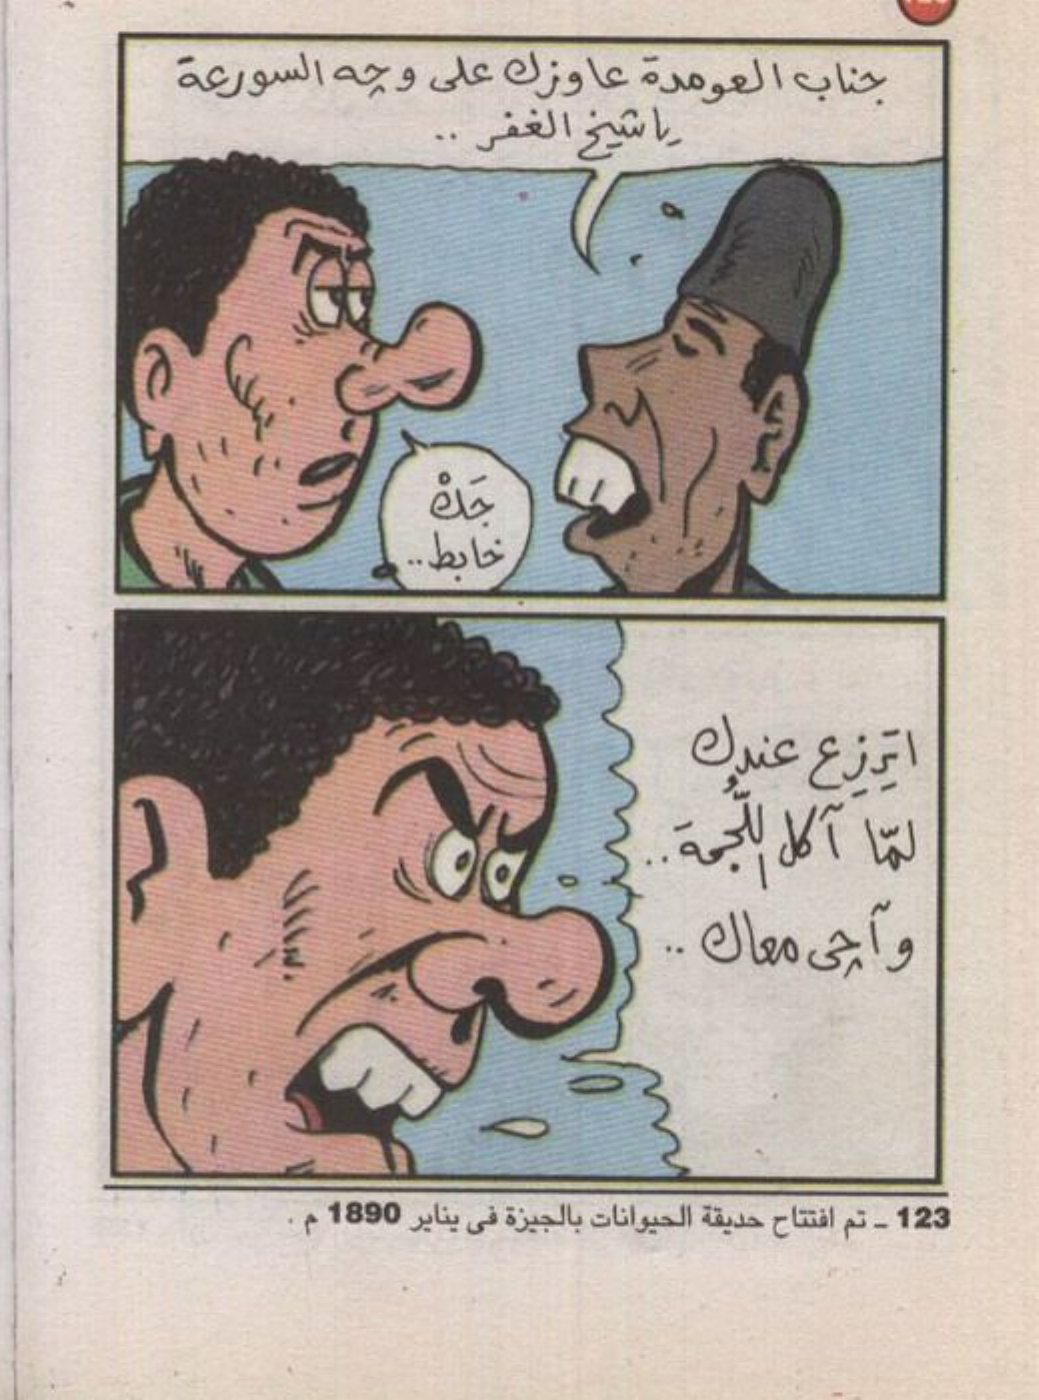 جناب العومدة عاوزك على وچه السورعة
ياشيخ الغفر ..
جَكْ
خابط..
اتِرِزِع عندك
لمّا آكل اللُّجمة..
وآچى معاك ..
123 ـ تم افتتاح حديقة الحيوانات بالجيزة فى يناير 1890 م .